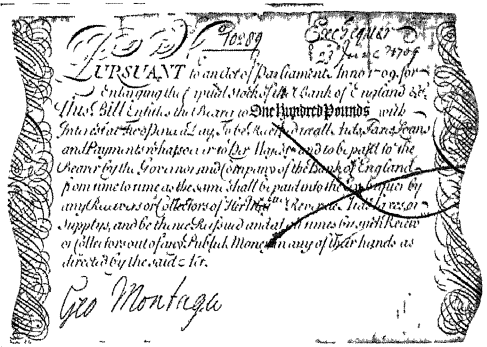 10289 Exchequer
23 June 1709
PURSUANT to an Act of Parliament Anno 1709. for
Enlarging the Capital Stock of the Bank of England &c
This Bill Entitles the Bearer to One Hundred Pounds with
Interest at Day To be in all Aids, Taxes, Loans
and Payments whatsoever to Her and to be paid to the
Bearer by the Governor and Company of the Bank of England.
from time to time as the same shall be paid into the Exchequer by
any Receivers or Collectors of Her Revenue, Aids, Taxes or
Supplys, and be thence Reissued and at all times by such Receivers
or Collectors out of any Publick Money in any of their hands as
directed by the said Act.
Geo Montagu